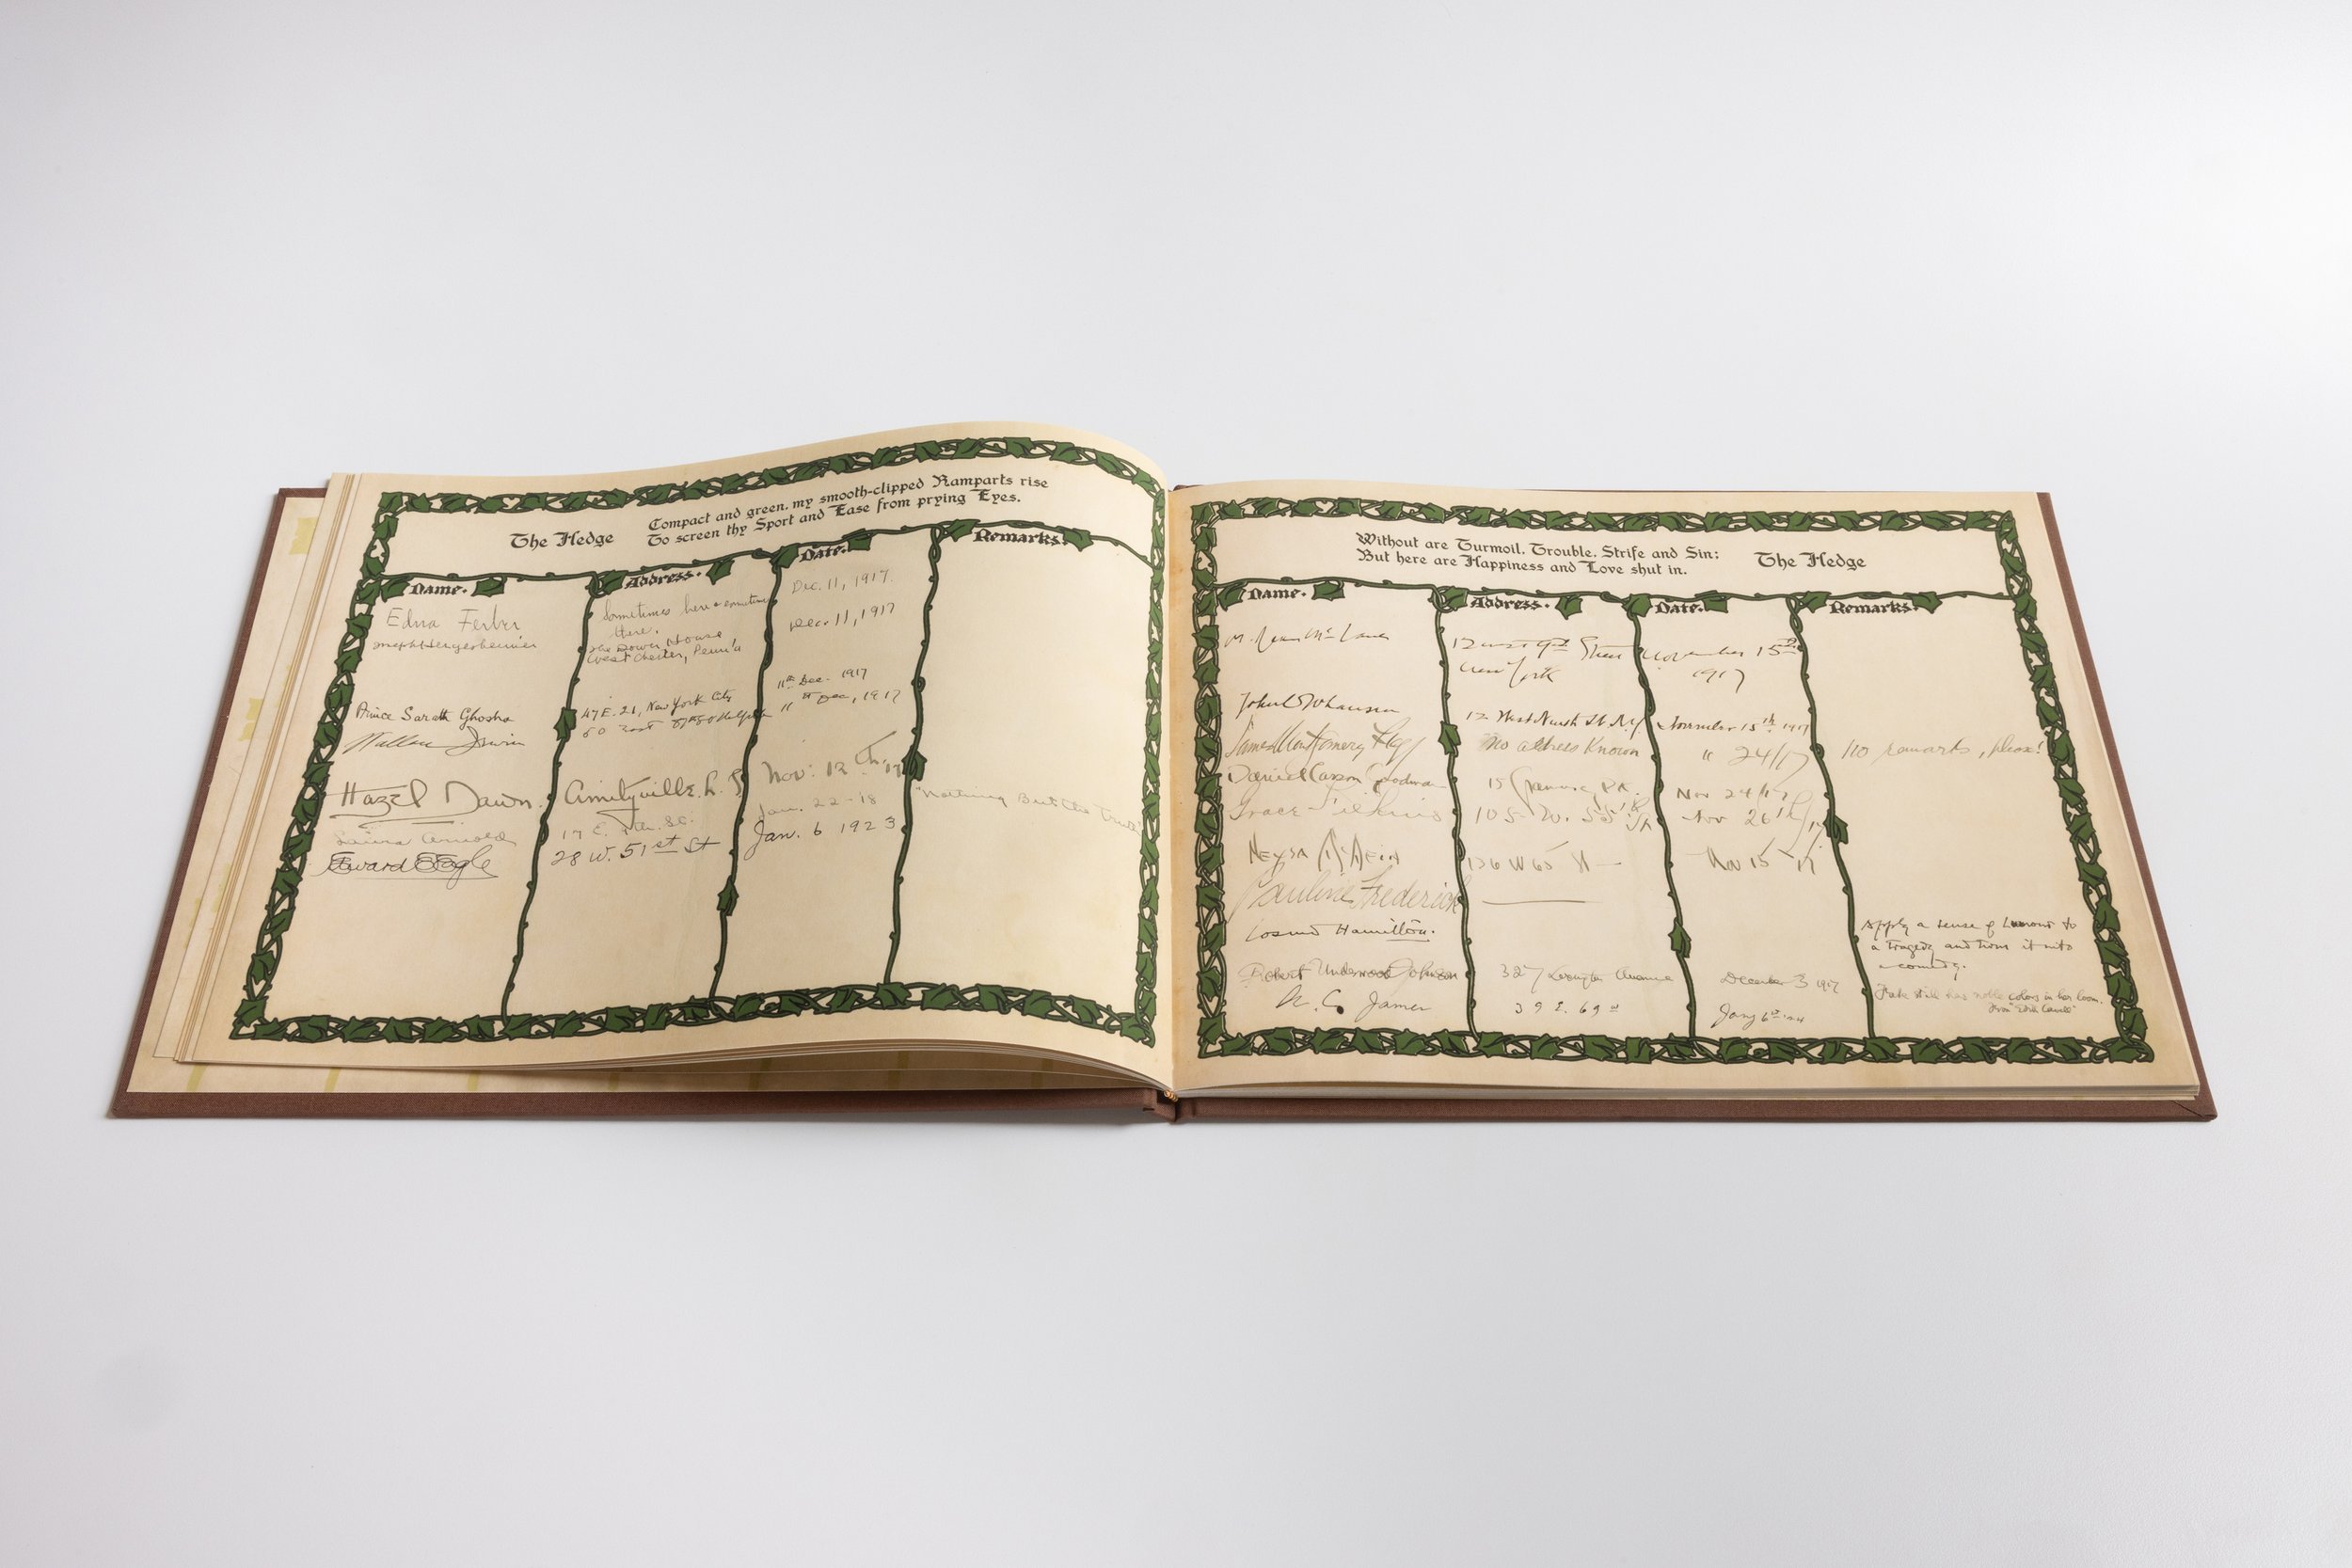 The Hedge
Compact and green, my smooth-clipped Ramparts rise
To screen thy Sport and Ease from prying Eyes.
Name. Address. Date. Remarks.
Edna Ferber Sometimes here & sometimes Dec. 11, 1917.
there.
Joseph Hergesheimer The Dower House Dec. 11, 1917
West Chester, Penn'a
Prince Sarath Ghosha 47 E. 21, New York City 11th Dec. 1917
Wallace Irwin " Dec, 1917
Hazel Dawn. Amityville. L. I. Nov. 12th, 17
Laura Arnold 17 E. St. Jan. 22-18 "Nothing But the Truth"
Edward E Eagle 28 W. 51st St Jan. 6 1923
Without are Turmoil, Trouble, Strife and Sin;
But here are Happiness and Love shut in.
The Hedge
Name. Address. Date. Remarks.
M. Mc 12 West 9th Street November 15th
New York 1917
John C Johansen 12 West Ninth St. N.Y November 15th 1917
James Montgomery Flagg No address Known " 24/17 No remarks, please!
Daniel Carson Goodman 15 Gramercy Pk. Nov 24/17
Grace Filkins 105 W. 55th St Nov 26th/17
Neysa McMein 136 W 65 St — Nov 15 17
Pauline Frederick
Cosmo Hamilton. Apply a sense of humour to
a tragedy and turn it into
a comedy.
Robert Underwood Johnson 327 Lexington Avenue December 3 1917 Fate still has noble colors in her loom.
From "Edith Cavell"
A. C. James 39 E. 69th Jany 6th